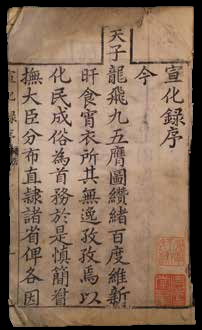 宣化録序
今
天子龍飛九五膺圖纘緒百度維新
旰食宵衣所其無逸孜孜焉以
化民成俗為首務於是慎簡督
撫大臣分布直隷諸省俾各因
宣化録